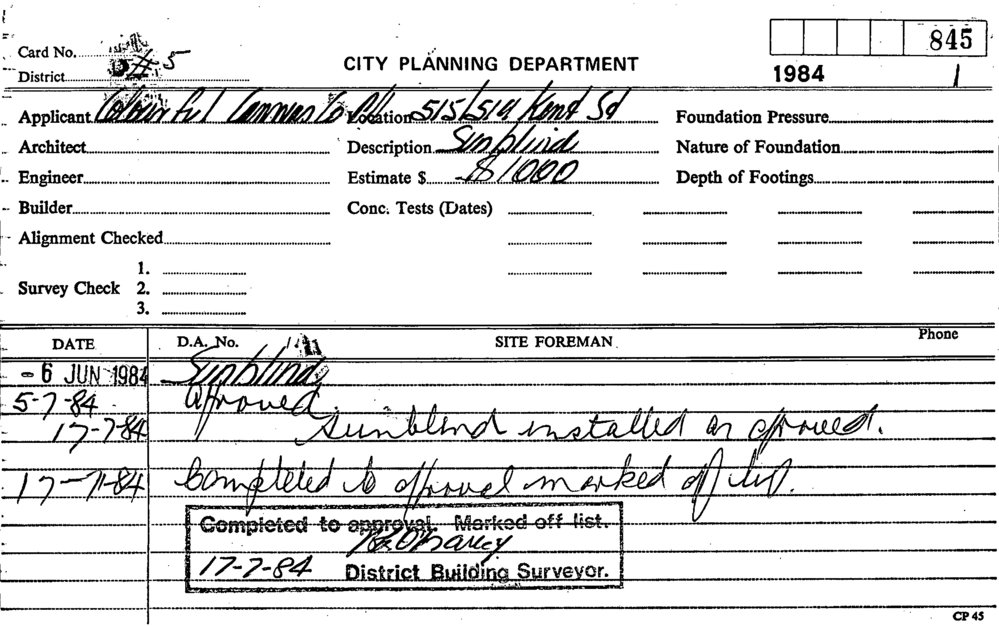 Card No.
845
District # 5
CITY PLANNING DEPARTMENT
1984 1
Applicant Colourful Canvas Co P/L Location 515/519 Kent St Foundation Pressure
Architect Description Sunblind Nature of Foundation
Engineer Estimate $ $1000 Depth of Footings
Builder Conc. Tests (Dates)
Alignment Checked
1.
Survey Check 2.
3.
DATE D.A. No. SITE FOREMAN Phone
- 6 JUN 1984 Sunblind
5-7-84 Approved
17-7-84 Sunblind installed as approved.
17-7-84 Completed to approval marked off list.
Completed to approval. Marked off list.
17-7-84 District Building Surveyor.
CP 45